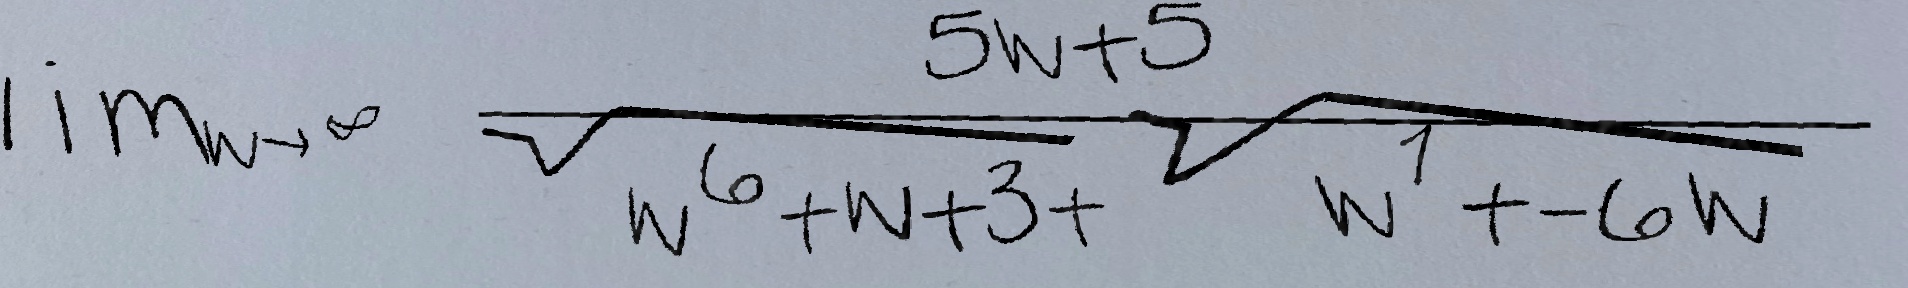 \lim_{w \to \infty} \frac{5w+5}{\sqrt{w^6+w+3}+\sqrt{w^1+-6w}}